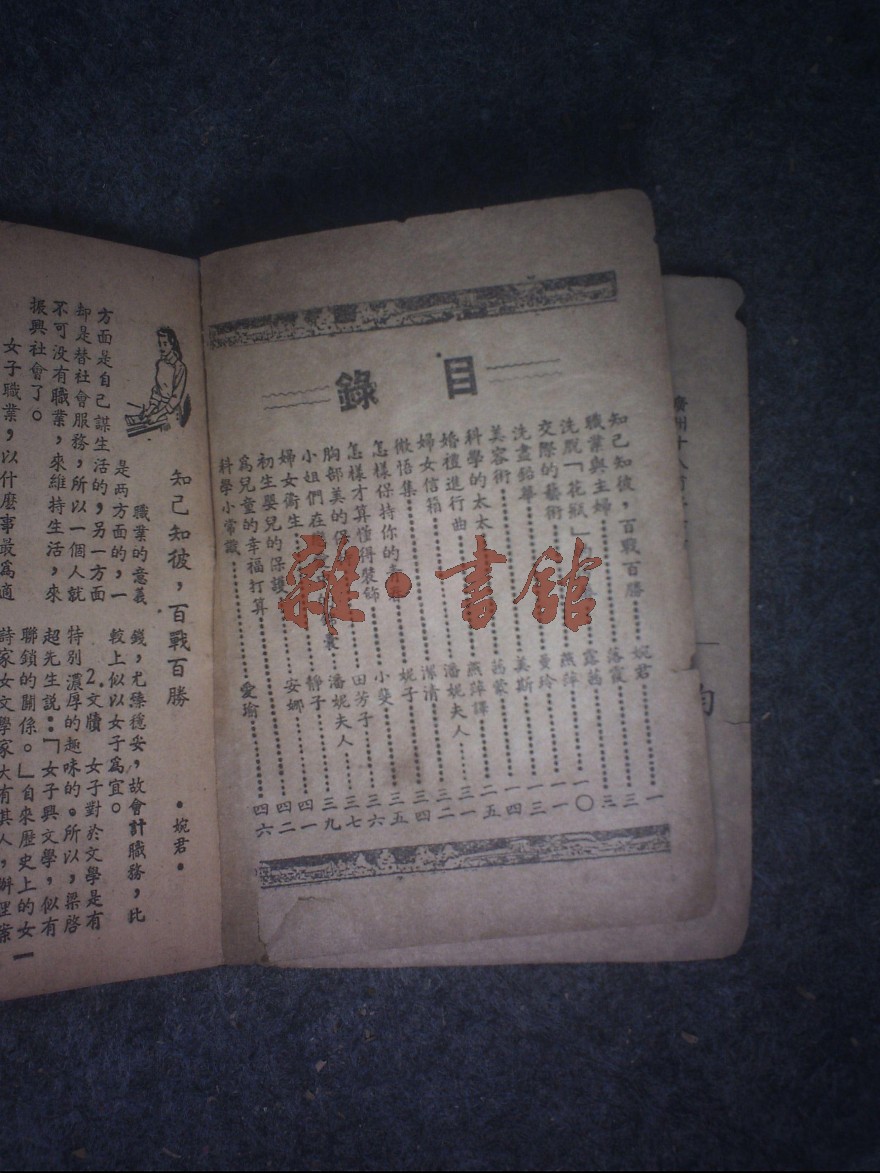 目錄
知己知彼，百戰百勝 婉君 一
職業與主婦 落霞 三
洗脫「花瓶」 露茜
交際的藝術 燕萍 一〇
洗盡鉛華 曼玲 一一
美容術 美斯 一三
科學的太太 茜蒙 一四
婚禮進行曲 燕萍譯 二五
婦女信箱 潘妮夫人 三一
懺悟集 潔清 三二
怎樣保持你的青春 妮子 三四
怎樣才算懂得裝飾 小斐 三五
胸部美的保 田芳子 三六
小姐們在 潘妮夫人 三七
婦女衛生 靜子 三九
初生嬰兒的保護 安娜 四一
爲兒童的幸福打算 四二
科學小常識 愛瑜 四六
雜·書館
知己知彼，百戰百勝
·婉君·
職業的意義
是两方面的，一
方面是自己謀生活的，另一方面
却是替社會服務，所以一個人就
不可没有職業，來維持生活，來
振興社會了。
女子職業，以什麽事最爲適
錢，尤臻穩妥，故會計職務，比
較上似以女子爲宜。
2.文牘 女子對於文學是有
特别濃厚的趣味的。所以，梁啓
超先生説：「女子與文學，似有
聯鎖的關係。」自來歷史上的女
詩家女文學家大有其人，辦理業
一